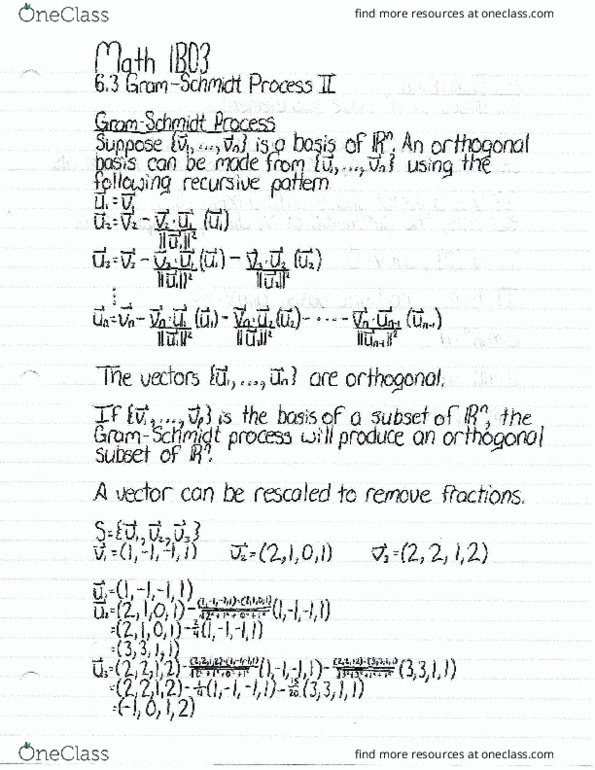 OneClass
find more resources at oneclass.com
Math 1B03
6.3 Gram-Schmidt Process II
Gram-Schmidt Process
Suppose {v⃗₁,...,v⃗ₙ} is a basis of ℝⁿ. An orthogonal
basis can be made from {v⃗₁,...,v⃗ₙ} using the
following recursive pattern
u⃗₁=v⃗₁
u⃗₂=v⃗₂ - (v⃗₂·u⃗₁)/‖u⃗₁‖² (u⃗₁)
u⃗₃=v⃗₃ - (v⃗₃·u⃗₁)/‖u⃗₁‖² (u⃗₁) - (v⃗₃·u⃗₂)/‖u⃗₂‖² (u⃗₂)
⋮
u⃗ₙ=v⃗ₙ - (v⃗ₙ·u⃗₁)/‖u⃗₁‖² (u⃗₁) - (v⃗ₙ·u⃗₂)/‖u⃗₂‖² (u⃗₂) - ... - (v⃗ₙ·u⃗ₙ₋₁)/‖u⃗ₙ₋₁‖² (u⃗ₙ₋₁)
The vectors {u⃗₁,...,u⃗ₙ} are orthogonal.
If {v⃗₁,...,v⃗ᵣ} is the basis of a subset of ℝⁿ, the
Gram-Schmidt process will produce an orthogonal
subset of ℝⁿ.
A vector can be rescaled to remove fractions.
S={v⃗₁,v⃗₂,v⃗₃}
v⃗₁=(1,-1,-1,1) v⃗₂=(2,1,0,1) v⃗₃=(2,2,1,2)
u⃗₁=(1,-1,-1,1)
u⃗₂=(2,1,0,1) - (1,-1,-1,1)
=(2,1,0,1) - 2/4 (1,-1,-1,1)
=(3,3,1,1)
u⃗₃=(2,2,1,2) - (1,-1,-1,1) - (3,3,1,1)
=(2,2,1,2) - 1/4 (1,-1,-1,1) - 15/20 (3,3,1,1)
=(-1,0,1,2)
OneClass
find more resources at oneclass.com